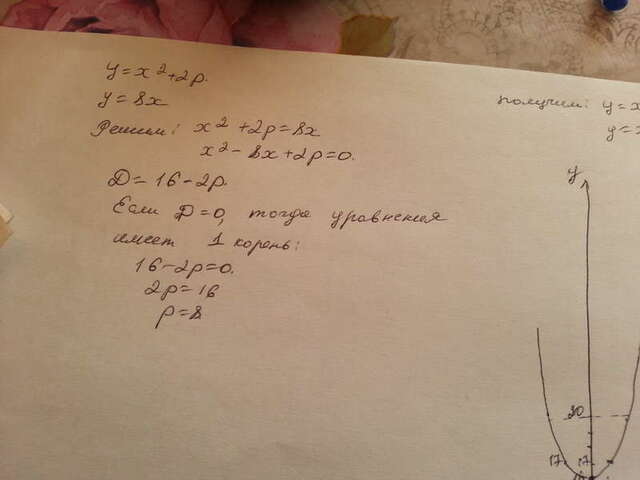 y=x²+2p.
y=8x
Решим: x²+2p=8x
x²-8x+2p=0.
D=16-2p.
Если D=0, тогда уравнения
имеет 1 корень:
16-2p=0.
2p=16
p=8
получим: y=x
y=
y
20
17
17